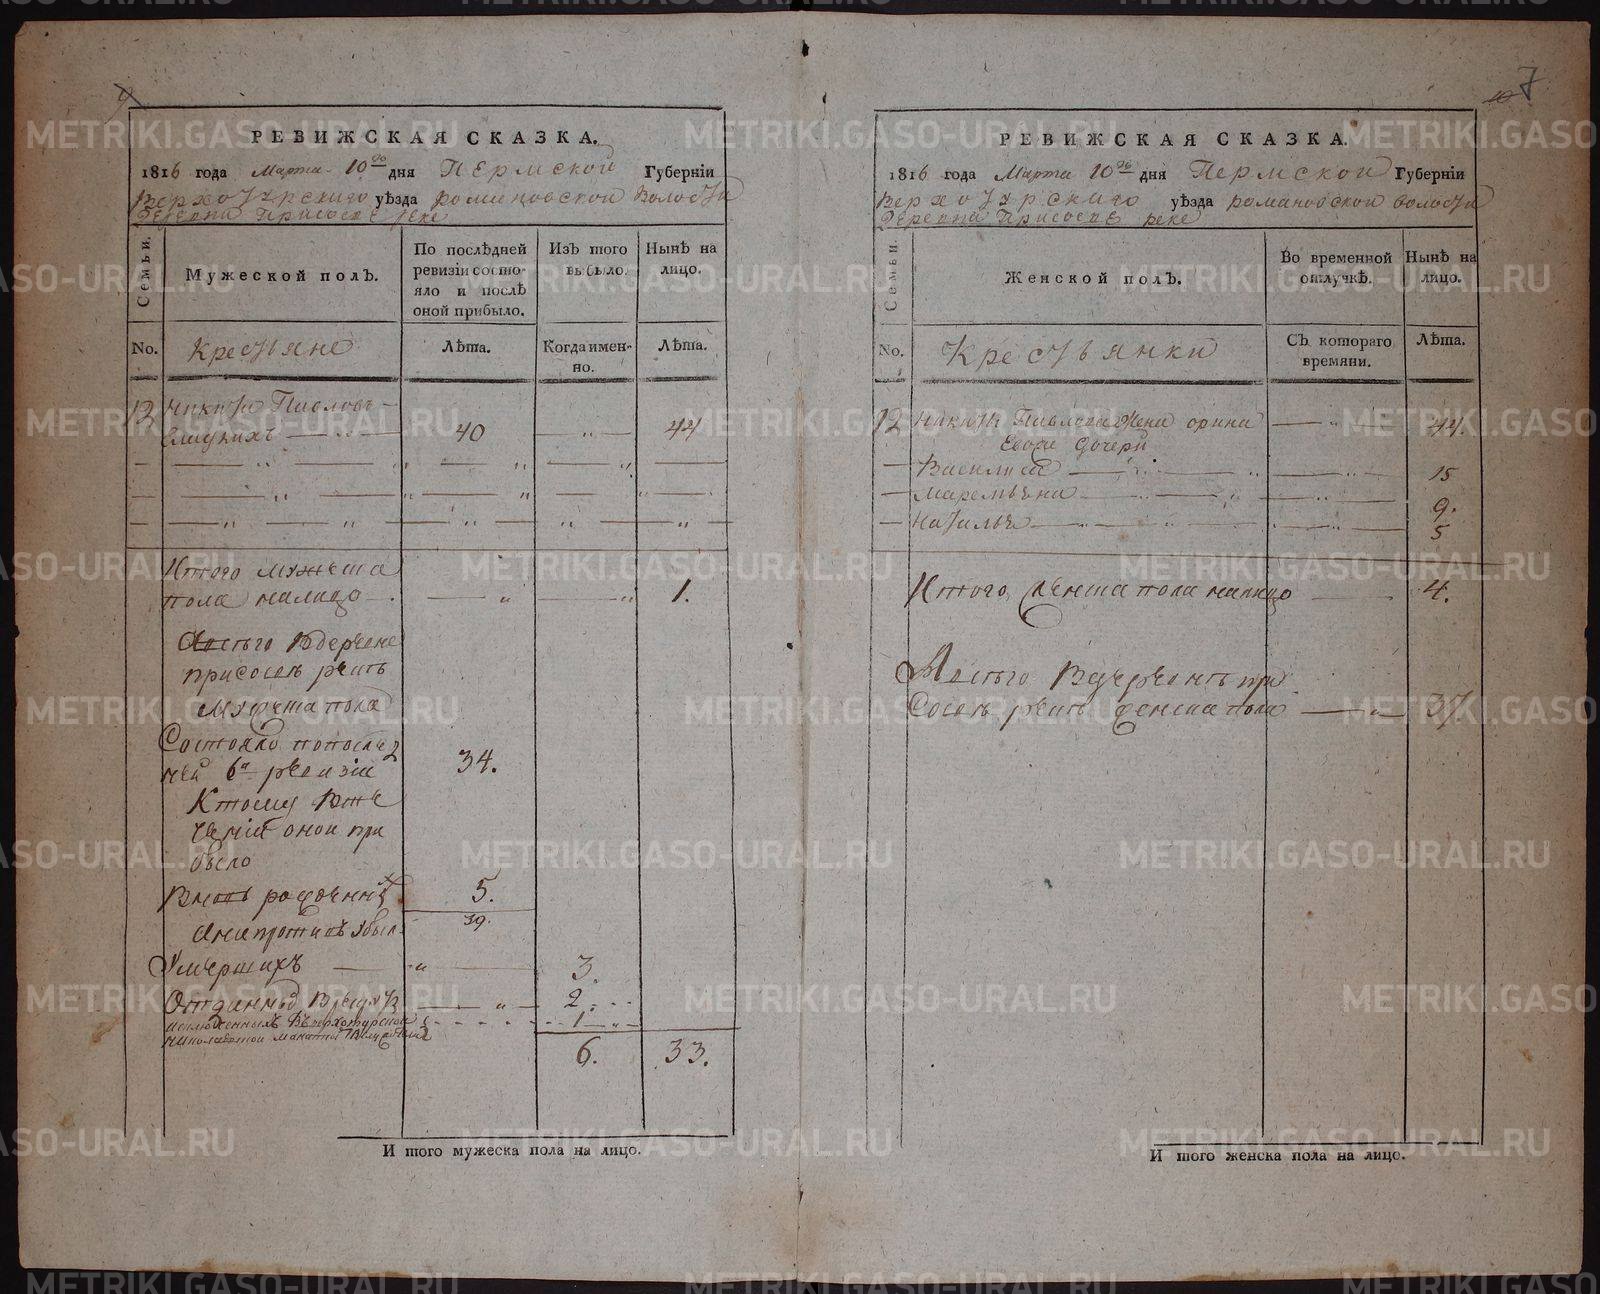 РЕВИЖСКАЯ СКАЗКА.
1816 года Марта 10го дня Пермской Губернїи
Верхотурскаго уѣзда романовской волости
Деревни Присосве реке
Семьи.
Мужеской полЪ.
По послѣдней ревизїи состояло и послѣ оной прибыло.
ИзЪ того выбыло.
НынѢ на лицо.
No.
Крестьяне
Лѣта.
Когда имен-но.
Лѣта.
12 Никита Павловъ
40 44
Итого мужеска
пола налицо 1.
Авсего Вдеревне
присосве реке
мужеска пола
Состояло попослед
ней 6й ревизіи 34.
Ктому Вте
ченіи оной при
было
Вновь рожденных 5.
39.
Анапротивъ убыло
Умершихъ 3.
Отданных Врекруты 2
1
6. 33.
И того мужеска пола на лицо.
7
РЕВИЖСКАЯ СКАЗКА.
1816 года Марта 10го дня Пермской Губернїи
Верхотурскаго уѣзда романовской волости
Деревни Присосве реке
Семьи.
Женской полЪ.
Во временной отлучкѣ.
НынѢ на лицо.
No.
Крестьянки
СЪ котораго времяни.
Лѣта.
12 Никиты Павлова жена орина 44.
дочери
Василиса 15
Маремьяна 9.
Наталья 5
Итого женска пола налицо 4.
Авсего Вдеревне при
Сосве реке женска пола 37
И того женска пола на лицо.
METRIKI.GASO-URAL.RU